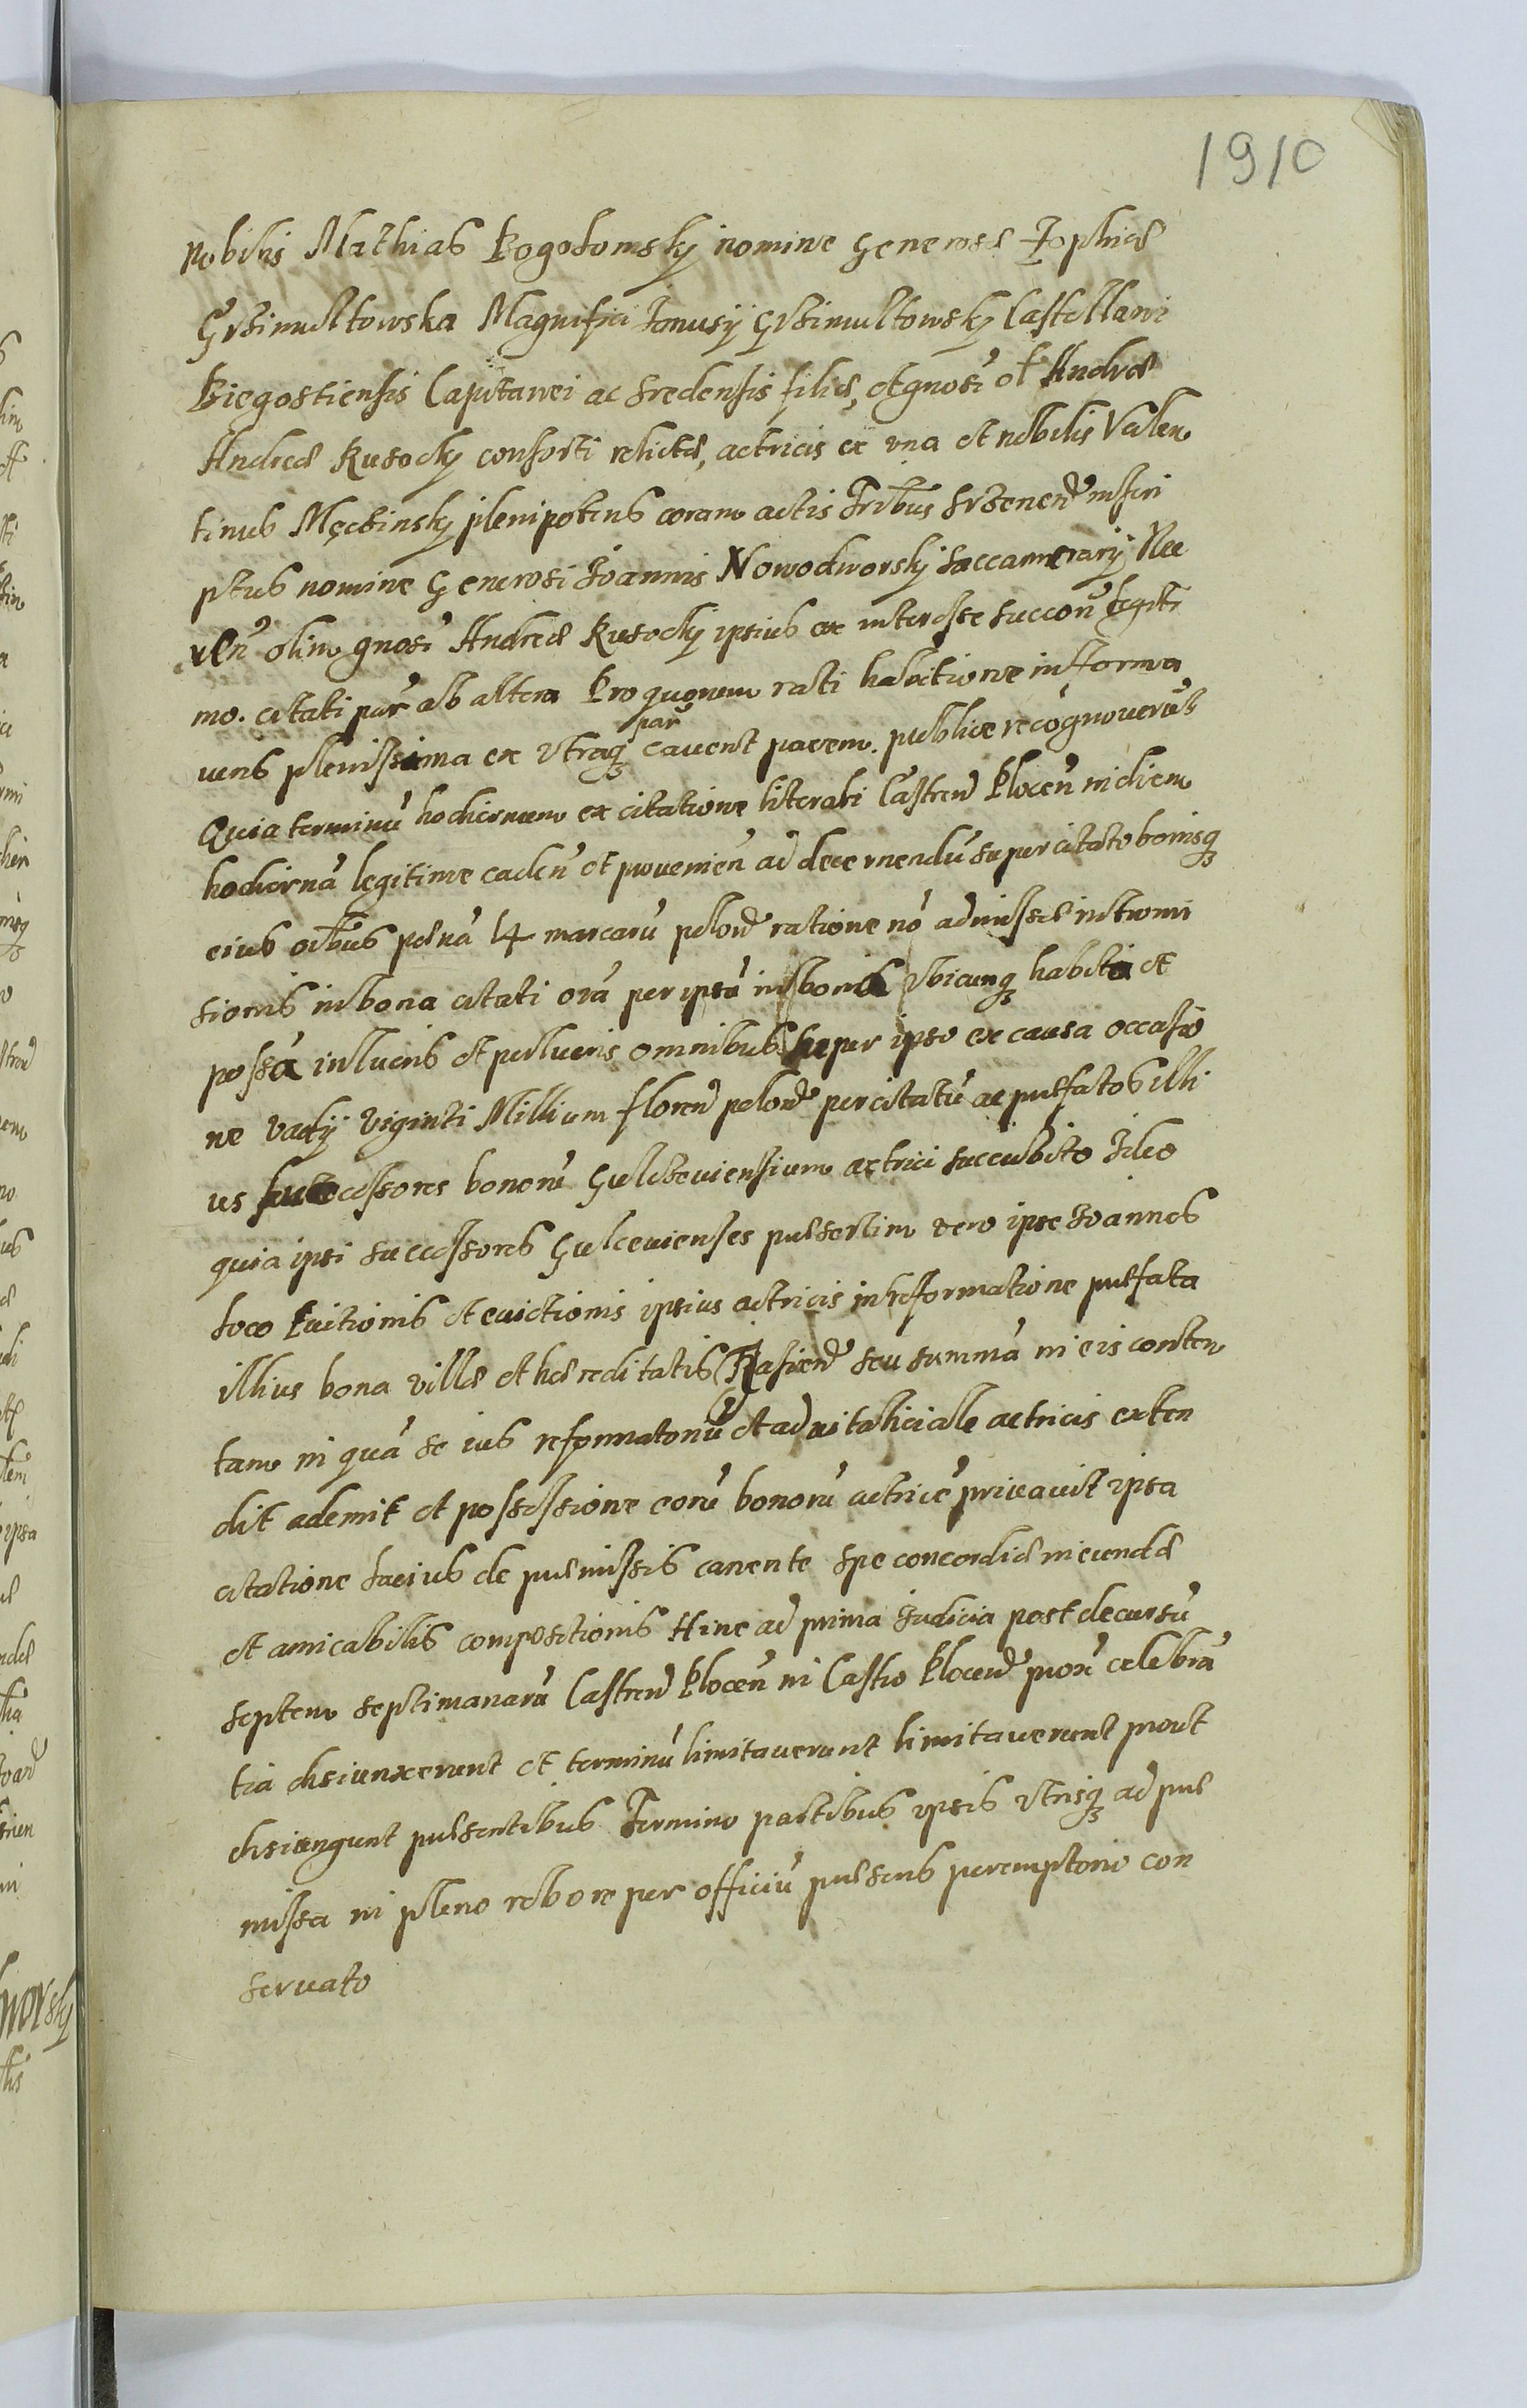 1910
Nobilis Mathias Rogoloński nomine Generosæ Zophiæ
Grzimultowska Magnifici Janusÿ Grzimultowskÿ Castellani
Biegostiensis Capitanei ac Sredensis filiæ, et gnosi ol Andræ
Andreæ Kusockÿ consorti relictæ, actricis ex vna et nobilis Valen
tinus Męcsinskÿ plenipotens coram actis pntibus inscri
ptus nomine Generosi Joannis Nowodworskÿ Succamerarÿ
olim gnosi Andreæ Kusockÿ ipsius ex interesse succon legiti
mo. citati par ab altera Pro quorum rati habitione in forma
iuris plenissima ex vtraq par cavent parem. publice recognoverūt
Quia terminū hodiernum ex citatione literali Castren Plocen in diem
hodiernā legitime caden et provenien ad decernendū super citato bonisq
eius oibus pænā 14 marcarū polon ratione nō admissæ intromi
sionis in bona citati oīa per ipsū in bonis vbicunq habita et
possā in lucris et perlucris omnibus super ipso ex causa occasio
ne vadÿ viginti Millium floren polon per citatū ac præfatos illi
us successores bonorū Gulczeviensium actrici succubito Ideo
quia ipsi successores Gulcevienses præsertim vero ipse Joannes
loco tuitionis et evictionis ipsius actricis in reformatione præfata
illius bona villæ et hæreditatis seu summā in eis conten
tam in quā se ius reformatoriū et advitaliciale actricis exten
dit ademit et possessione eorū bonorū actricē privavit ipsa
citatione lacius de præmissis canente Spe concordiæ ineundæ
et amicabilis compositionis Hinc ad prima Judicia post decursū
septem septimanarū Castren Plocen in Castro Plocen proxī celebrā
tia disiunxerunt et terminū limitaverunt limitaverunt prout
disiungunt præsentibus Termino partibus ipsis vtrisq ad præ
missa in pleno robore per officiū præsens peremptorie con
servato